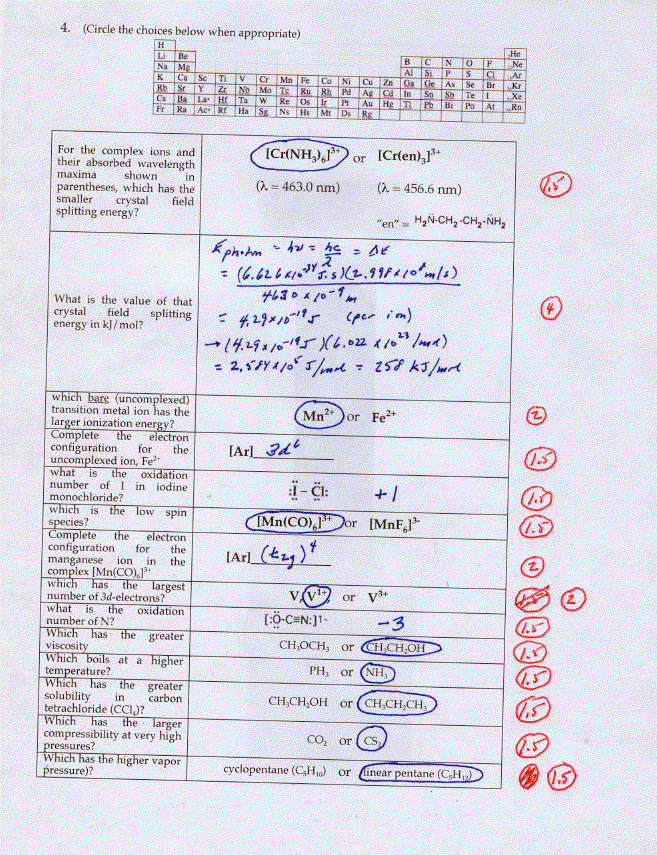 4. (Circle the choices below when appropriate)
H He
Li Be B C N O F Ne
Na Mg Al Si P S Cl Ar
K Ca Sc Ti V Cr Mn Fe Co Ni Cu Zn Ga Ge As Se Br Kr
Rb Sr Y Zr Nb Mo Tc Ru Rh Pd Ag Cd In Sn Sb Te I Xe
Cs Ba La Hf Ta W Re Os Ir Pt Au Hg Tl Pb Bi Po At Rn
Fr Ra Ac Rf Ha Sg Ns Hs Mt Ds Rg
For the complex ions and
their absorbed wavelength
maxima shown in
parentheses, which has the
smaller crystal field
splitting energy?
[Cr(NH₃)₆]³⁺ or [Cr(en)₃]³⁺
(λ = 463.0 nm) (λ = 456.6 nm)
"en" = H₂N̈-CH₂-CH₂-N̈H₂
1.5
What is the value of that
crystal field splitting
energy in kJ/mol?
E photon = hν = hc/λ = ΔE
= (6.626x10⁻³⁴ J.s)(2.998x10⁸ m/s)
4630 x 10⁻⁹ m
= 4.29x10⁻¹⁹ J (per ion)
→ (4.29x10⁻¹⁹ J)(6.022 x10²³/mol)
= 2.584x10⁵ J/mol = 258 kJ/mol
4
which bare (uncomplexed)
transition metal ion has the
larger ionization energy?
Mn²⁺ or Fe²⁺
2
Complete the electron
configuration for the
uncomplexed ion, Fe²⁺
[Ar] 3d⁶
1.5
what is the oxidation
number of I in iodine
monochloride?
:Ï – C̈l: +1
1.5
which is the low spin
species?
[Mn(CO)₆]³⁺ or [MnF₆]³⁻
1.5
Complete the electron
configuration for the
manganese ion in the
complex [Mn(CO)₆]³⁺
[Ar] (t₂g)⁴
2
which has the largest
number of 3d-electrons?
V, V¹⁺, or V³⁺
2
what is the oxidation
number of N?
[:Ö-C≡N:]¹⁻ -3
1.5
Which has the greater
viscosity
CH₃OCH₃ or CH₃CH₂OH
1.5
Which boils at a higher
temperature?
PH₃ or NH₃
1.5
Which has the greater
solubility in carbon
tetrachloride (CCl₄)?
CH₃CH₂OH or CH₃CH₂CH₃
1.5
Which has the larger
compressibility at very high
pressures?
CO₂ or CS₂
1.5
Which has the higher vapor
pressure)?
cyclopentane (C₅H₁₀) or linear pentane (C₅H₁₂)
1.5